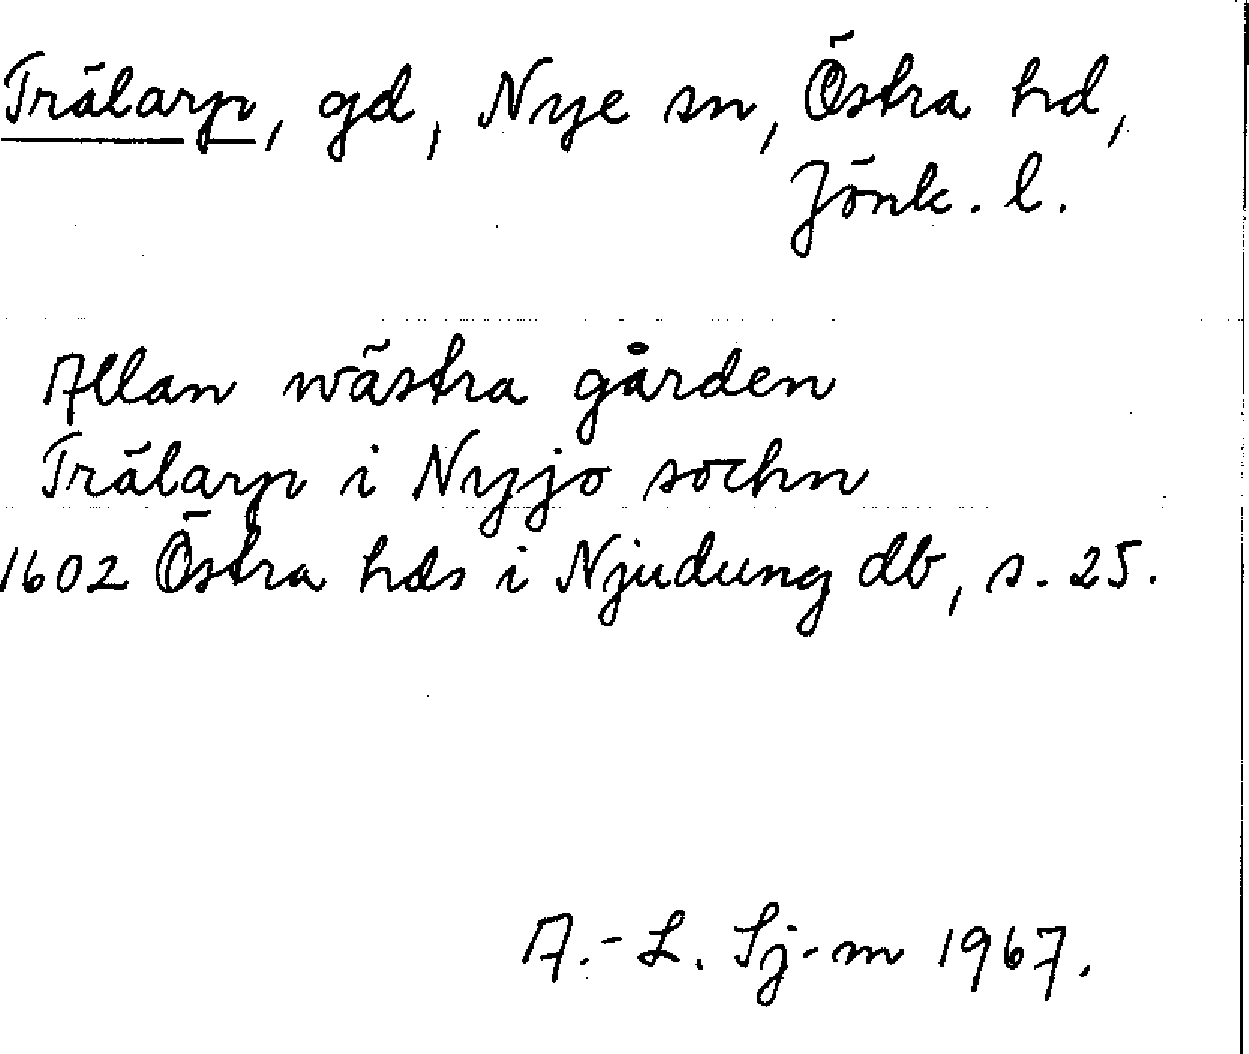 Trälarp, gd, Nye sn, Östra hd,
Jönk. l.
Allan wästra gården
Trälarp i Nyjo sochn
1602 Östra hds i Njudung db, s. 25.
A.-L. Sj-m 1967.